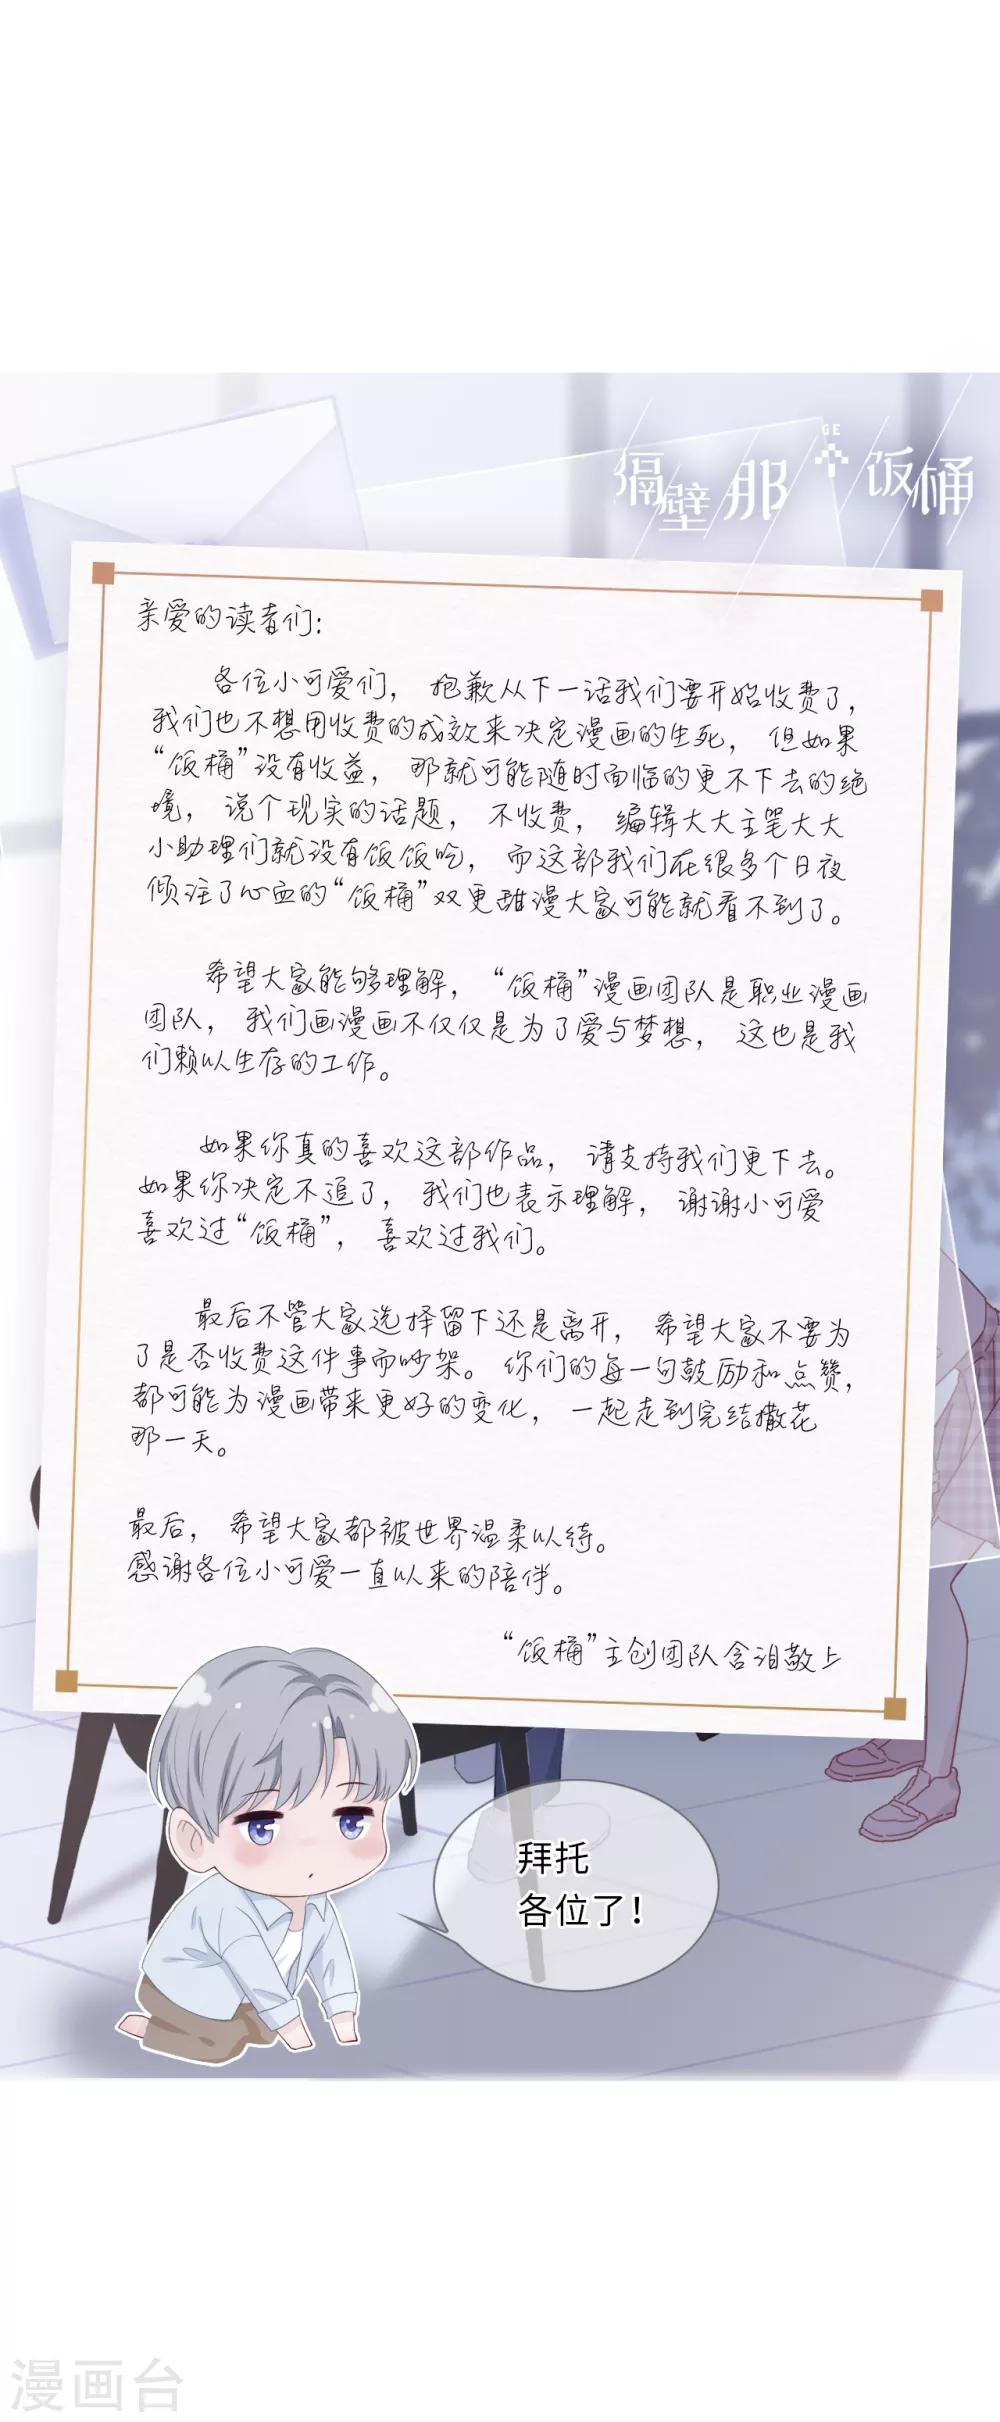 GE
隔壁那个饭桶
亲爱的读者们:
各位小可爱们,抱歉从下一话我们要开始收费了,
我们也不想用收费的成效来决定漫画的生死,但如果
“饭桶”没有收益,那就可能随时面临的更不下去的绝
境,说个现实的话题,不收费,编辑大大主笔大大
小助理们就没有饭饭吃,而这部我们在很多个日夜
倾注了心血的“饭桶”双更甜漫大家可能就看不到了。
希望大家能够理解,“饭桶”漫画团队是职业漫画
团队,我们画漫画不仅仅是为了爱与梦想,这也是我
们赖以生存的工作。
如果你真的喜欢这部作品,请支持我们更下去。
如果你决定不追了,我们也表示理解,谢谢小可爱
喜欢过“饭桶”,喜欢过我们。
最后不管大家选择留下还是离开,希望大家不要为
了是否收费这件事而吵架。你们的每一句鼓励和点赞,
都可能为漫画带来更好的变化,一起走到完结撒花
那一天。
最后,希望大家都被世界温柔以待。
感谢各位小可爱一直以来的陪伴。
“饭桶”主创团队含泪敬上
拜托
各位了!
漫画台